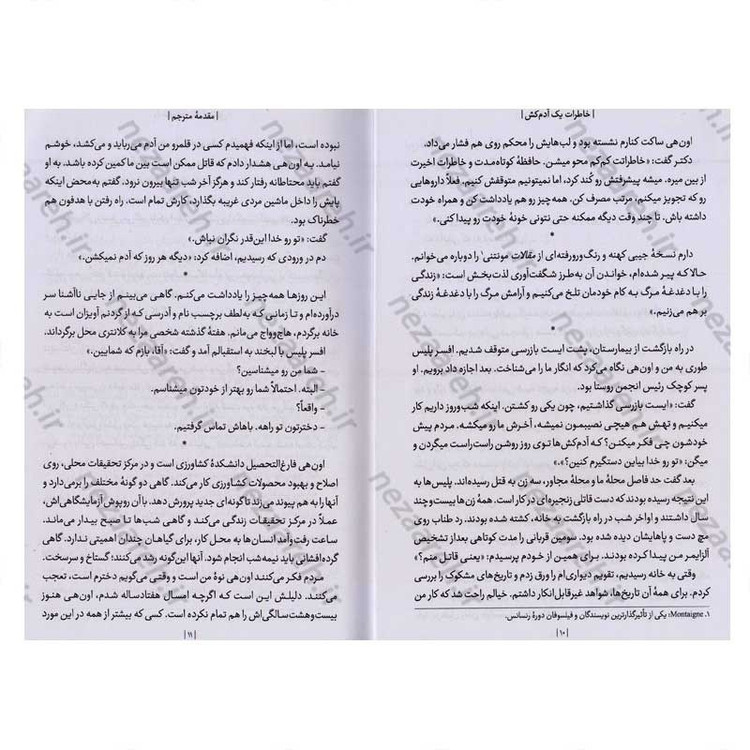 | خاطرات یک آدم‌کش |
اون‌هی ساکت کنارم نشسته بود و لب‌هایش را محکم روی هم فشار می‌داد.
دکتر گفت: «خاطراتت کم‌کم محو میشن. حافظهٔ کوتاه‌مدت و خاطرات اخیرت
از بین میره. میشه پیشرفتش رو کُند کرد، اما نمیتونیم متوقفش کنیم. فعلاً داروهایی
رو که تجویز میکنم، مرتب مصرف کن. همه‌چیز رو هم یادداشت کن و همراه خودت
داشته باش. تا چند وقت دیگه ممکنه حتی نتونی خونهٔ خودت رو پیدا کنی.»
*
دارم نسخهٔ جیبی کهنه و رنگ‌ورورفته‌ای از مقالات مونتنی۱ را دوباره می‌خوانم.
حالا که پیر شده‌ام، خواندن آن به‌طرز شگفت‌آوری لذت‌بخش است: «زندگی
را با دغدغهٔ مرگ به کام خودمان تلخ می‌کنیم و آرامش مرگ را با دغدغهٔ زندگی
بر هم می‌زنیم.»
*
در راه بازگشت از بیمارستان، پشت ایست بازرسی متوقف شدیم. افسر پلیس
طوری به من و اون‌هی نگاه می‌کرد که انگار ما را می‌شناخت. بعد اجازه داد برویم. او
پسر کوچک رئیس انجمن روستا بود.
گفت: «ایست بازرسی گذاشتیم، چون یکی رو کشتن. اینکه شب‌وروز داریم کار
میکنیم و تهش هم هیچی نصیبمون نمیشه، آخرش ما رو میکشه. مردم پیش
خودشون چی فکر میکنن؟ که آدم‌کش‌ها توی روز روشن راست‌راست میگردن و
میگن: «تو رو خدا بیاین دستگیرم کنین؟».»
بعد گفت حد فاصل محلهٔ ما و محلهٔ مجاور، سه زن به قتل رسیده‌اند. پلیس‌ها به
این نتیجه رسیده بودند که دست قاتلی زنجیره‌ای در کار است. همهٔ زن‌ها بیست‌وچند
سال داشتند و اواخر شب در راه بازگشت به خانه، کشته شده بودند. رد طناب روی
مچ دست و پاهایشان دیده شده بود. سومین قربانی را مدت کوتاهی بعد از تشخیص
آلزایمر من پیدا کرده بودند. برای همین از خودم پرسیدم: «یعنی قاتل منم؟»
وقتی به خانه رسیدیم، تقویم دیواری‌ام را ورق زدم و تاریخ‌های مشکوک را بررسی
کردم. برای همهٔ آن تاریخ‌ها، شواهد غیرقابل‌انکار داشتم. خیالم راحت شد که کار من
۱. Montaigne: یکی از تأثیرگذارترین نویسندگان و فیلسوفان دورهٔ رنسانس.
| ۱۰ |
| مقدمهٔ مترجم |
نبوده است، اما از اینکه فهمیدم کسی در قلمرو من آدم می‌رباید و می‌کشد، خوشم
نیامد. به اون‌هی هشدار دادم که قاتل ممکن است بین ما کمین کرده باشد. به او
گفتم باید محتاطانه رفتار کند و هرگز آخر شب تنها بیرون نرود. گفتم به‌محض اینکه
پایش را داخل ماشین مردی غریبه بگذارد، کارش تمام است. راه رفتن با هدفون هم
خطرناک بود.
گفت: «تو رو خدا این‌قدر نگران نباش.»
دم در ورودی که رسیدیم، اضافه کرد: «دیگه هر روز که آدم نمیکشن.»
*
این روزها همه‌چیز را یادداشت می‌کنم. گاهی می‌بینم از جایی ناآشنا سر
درآورده‌ام و تا زمانی که به لطف برچسب نام و آدرسی که از گردنم آویزان است به
خانه برگردم، هاج‌وواج می‌مانم. هفتهٔ گذشته شخصی مرا به کلانتری محل برگرداند.
افسر پلیس با لبخند به استقبالم آمد و گفت: «آقا، بازم که شمایین.»
- شما من رو میشناسین؟
- البته. احتمالاً شما رو بهتر از خودتون میشناسم.
- واقعاً؟
- دخترتون تو راهه. باهاش تماس گرفتیم.
*
اون‌هی فارغ‌التحصیل دانشکدهٔ کشاورزی است و در مرکز تحقیقات محلی، روی
اصلاح و بهبود محصولات کشاورزی کار می‌کند. گاهی دو گونهٔ مختلف را برمی‌دارد و
آنها را به هم پیوند می‌زند تا گونه‌ای جدید پرورش دهد. با آن روپوش آزمایشگاهی‌اش،
عملاً در مرکز تحقیقات زندگی می‌کند و گاهی شب‌ها تا صبح بیدار می‌ماند.
ساعت رفت‌وآمد انسان‌ها به محل کار، برای گیاهان چندان اهمیتی ندارد. گاهی
گرده‌افشانی باید نیمه‌شب انجام شود. آنها این‌گونه رشد می‌کنند؛ گستاخ و سرسخت.
مردم فکر می‌کنند اون‌هی نوهٔ من است و وقتی می‌گویم دخترم است، تعجب
می‌کنند. دلیلش این است که اگرچه امسال هفتادساله شدم، اون‌هی هنوز
بیست‌وهشت‌سالگی‌اش را هم تمام نکرده است. کسی که بیشتر از همه در این مورد
| ۱۱ |
nezaareh.ir